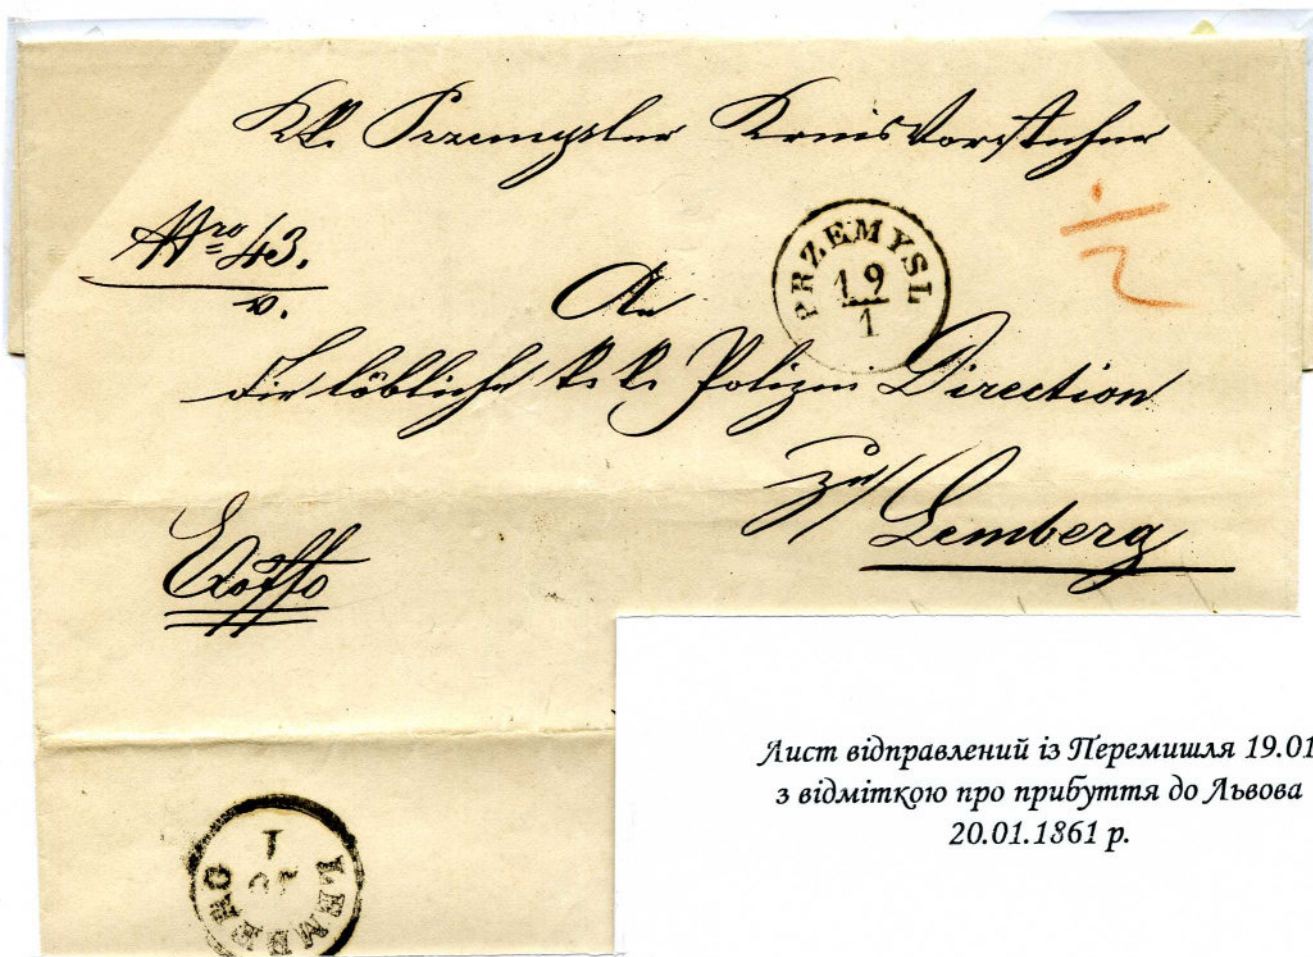 K.k. Przemysler Kreisvorsteher
Nro 43.
v.
PRZEMYSL
19
1
An
die löbliche k. k. Polizei Direction
zu
Lemberg
LEMBERG
1
Лист відправлений із Перемишля 19.01
з відміткою про прибуття до Львова
20.01.1861 р.